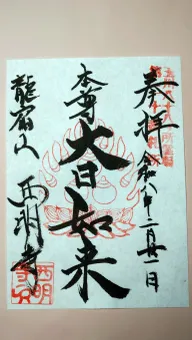 奉拝 令和八年二月廿一日
本尊 大日如来
龍宿山 西明寺
西明寺印